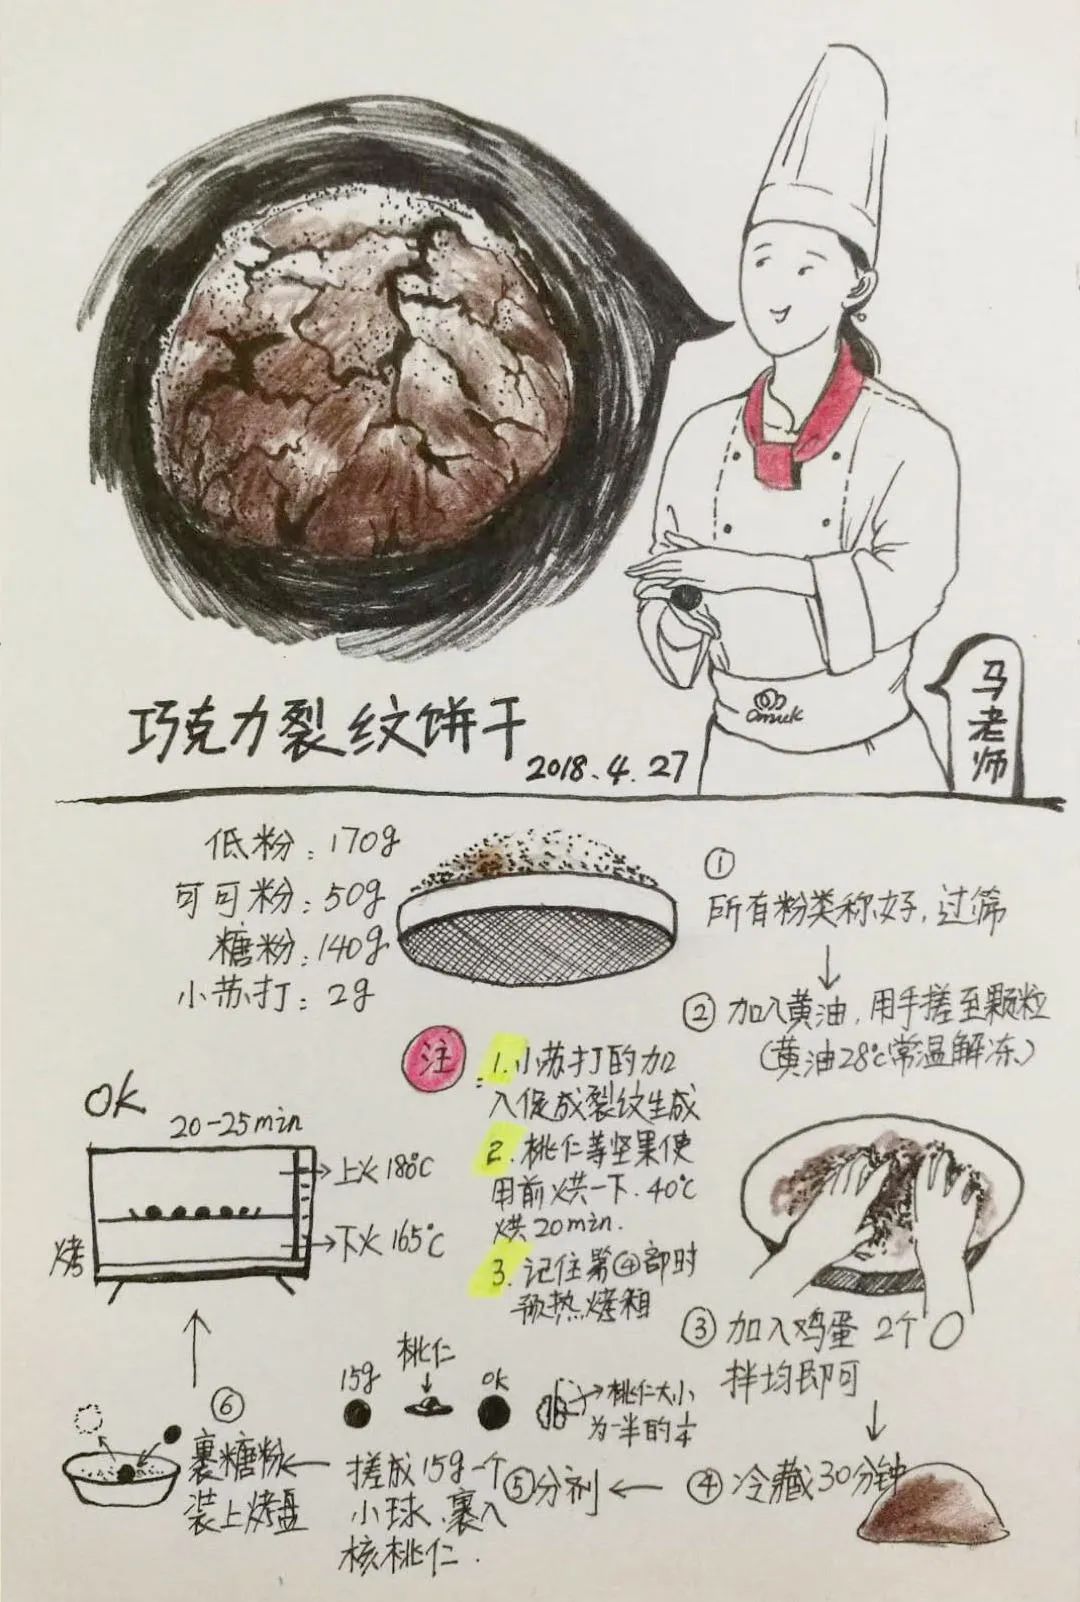 巧克力裂纹饼干
2018.4.27
马老师
Omuk
低粉:170g
可可粉:50g
糖粉:140g
小苏打:2g
①
所有粉类称好,过筛
② 加入黄油,用手搓至颗粒
(黄油28℃常温解冻)
注:
1.小苏打的加
入促成裂纹生成
2.桃仁等坚果使
用前烘一下.40℃
烘20min.
3.记住第④部时
预热烤箱
③ 加入鸡蛋 2个
拌均即可
④ 冷藏30分钟
⑤分剂
搓成15g一个
小球、裹入
核桃仁.
15g
桃仁
OK
桃仁大小
为一半的1/4
⑥
裹糖粉
装上烤盘
烤
OK
20-25min
上火 180℃
下火 165℃